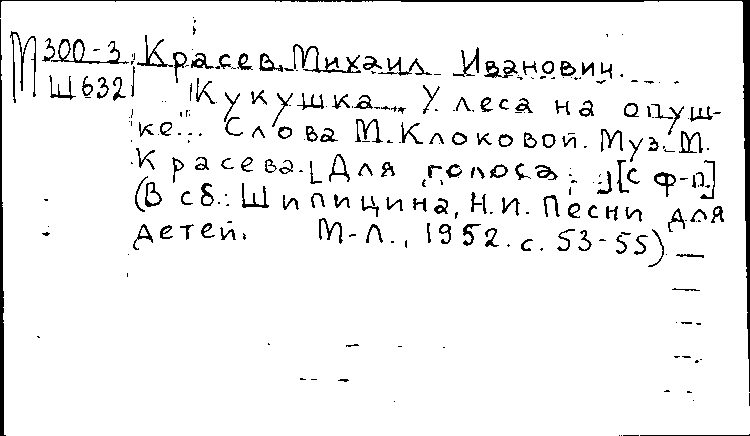 М 300-3 Красев, Михаил Иванович.
Ш632 Кукушка... У леса на опуш-
ке... Слова М. Клоковой. Муз. М.
Красева. [Для голоса] [с ф-п.]
(В сб.: Шипицина, Н.И. Песни для
детей. М-Л., 1952. с. 53-55)